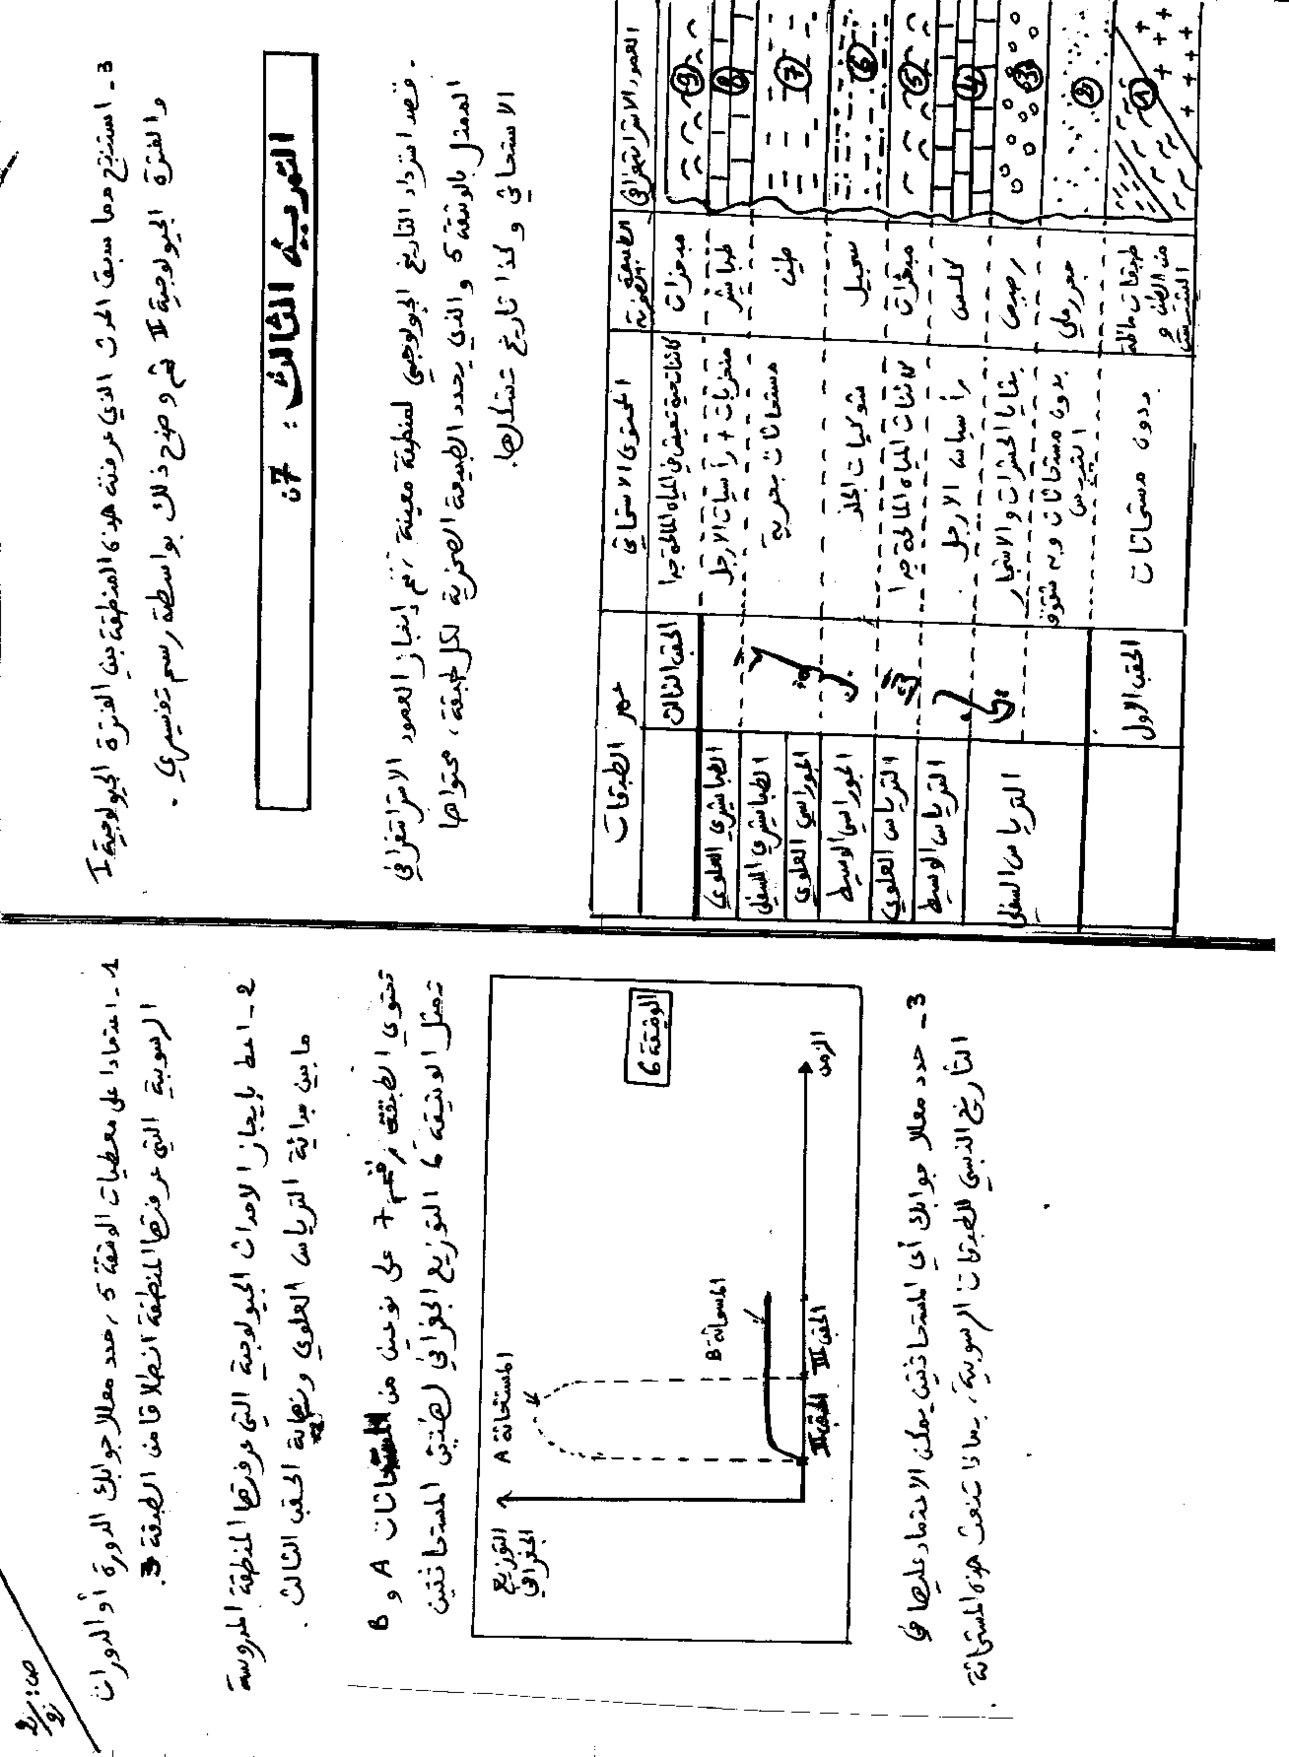 3 - استنتج مما سبق الحدث الذي عرفته هذه المنطقة بين الفترة الجيولوجية I
والفترة الجيولوجية II ثم وضح ذلك بواسطة رسم تفسيري .
التمرين الثالث : 7ن
- قصد استرداد التاريخ الجيولوجي لمنطقة معينة ، تم إنجاز العمود الاستراتغرافي
الممثل بالوثيقة 5 والذي يحدد الطبيعة الصخرية لكل طبقة ، محتواها
الاستحاثي وكذا تاريخ تشكلها.
الطبقات عمر المحتوى الاستحاثي الطبيعة الصخرية العمود الاستراتغرافي
الحقب الثالث كائنات حية تعيش في المياه المالحة جدا مبخرات 9
الطباشيري العلوي منخربات + رأسيات الارجل طباشير 8
الطباشيري السفلي
الجوراسي العلوي مستحاثات بحرية طين 7
الجوراسي الوسيط شوكيات الجلد سجيل 6
الترياس العلوي كائنات المياه المالحة جدا مبخرات 5
الترياس الوسيط رأسيات الارجل كلس 4
الترياس السفلي بقايا الحشرات والاشجار رصيص 3
بدون مستحاثات وبه شقوق التيبس حجر رملي 2
الحقب الاول بدون مستحاثات طبقات مائلة من الطين و الشيست 1
1 - اعتمادا على معطيات الوثيقة 5 ، حدد معللا جوابك الدورة أو الدورات
الرسوبية التي عرفتها المنطقة انطلاقا من الطبقة 3.
2 - اعط بإيجاز الاحداث الجيولوجية التي عرفتها المنطقة المدروسة
ما بين بداية الترياس العلوي ونهاية الحقب الثالث .
تحتوي الطبقة رقم 7 على نوعين من المستحاثات A و B
تمثل الوثيقة 6 التوزيع الجغرافي لهتين المستحاثتين
الوثيقة 6
التوزيع الجغرافي
المستحاثة A
المستحاثة B
الحقب II
الحقب III
الزمن
3 - حدد معللا جوابك أي المستحاثتين يمكن الاعتماد عليها في
التأريخ النسبي للطبقات الرسوبية ، بماذا تنعت هذه المستحاثة .